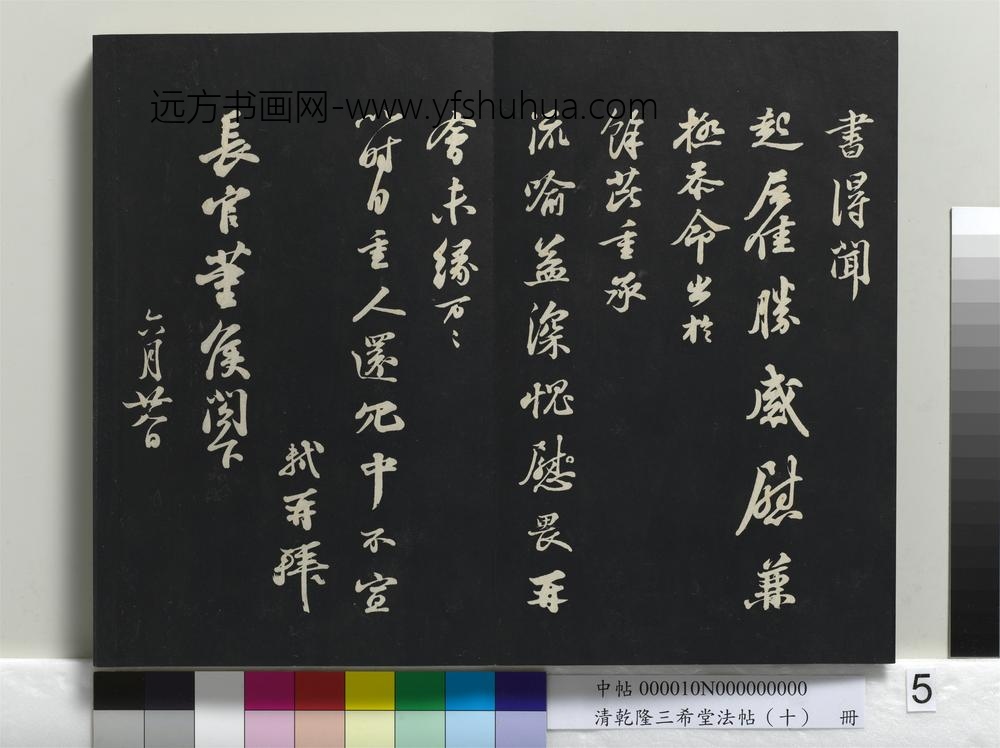 远方书画网-www.yfshuhua.com
書得聞
起居佳勝感慰兼
極忝命出於
餘芘重承
流喻益深愧慰畏再
會未緣万〻
以时自重人還冗中不宣
軾再拜
長官董侯閣下
六月廿八日
中帖 000010N000000000
清乾隆三希堂法帖（十） 冊
5